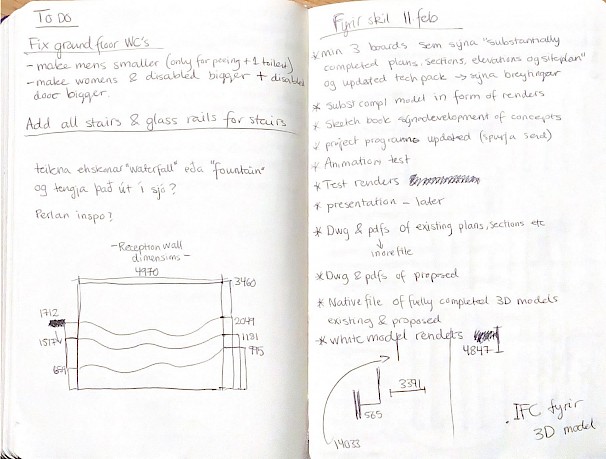 To Do
Fix ground floor WC's
- make mens smaller (only for peeing + 1 toilet)
- make womens & disabled bigger + disabled
door bigger.
Add all stairs & glass rails for stairs
teikna ehskonar "waterfall" eða "fountain"
og tengja það út í sjó?
Perlan inspo?
- Reception wall
dimensions -
4970
3460
1712
2049
1517
1131
995
Fyrir skil 11 feb
* min 3 boards sem sýna "substantially
completed plans, sections, elevations og siteplan"
og updated tech pack → sýna breytingar
* Subst compl model in form of renders
* Sketch book sýna development of concepts
* project programme updated (spurja send)
* Animation test
* Test renders
* presentation - later
* Dwg & pdfs of existing plans, sections etc
↓
in one file
* Dwg & pdfs of proposed
* Native file of fully completed 3D models
existing & proposed
* white model renders
4847
3371
565
14033
. IFC fyrir
3D model